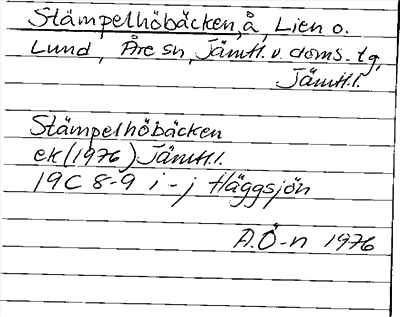 Stämpelhöbäcken, å, Lien o.
Lund, Åre sn, Jämtl. v. doms. tg,
Jämtl.l.
Stämpelhöbäcken
ek (1976) Jämtl.l.
19C 8-9 i-j Häggsjön
A.Ö-n 1976